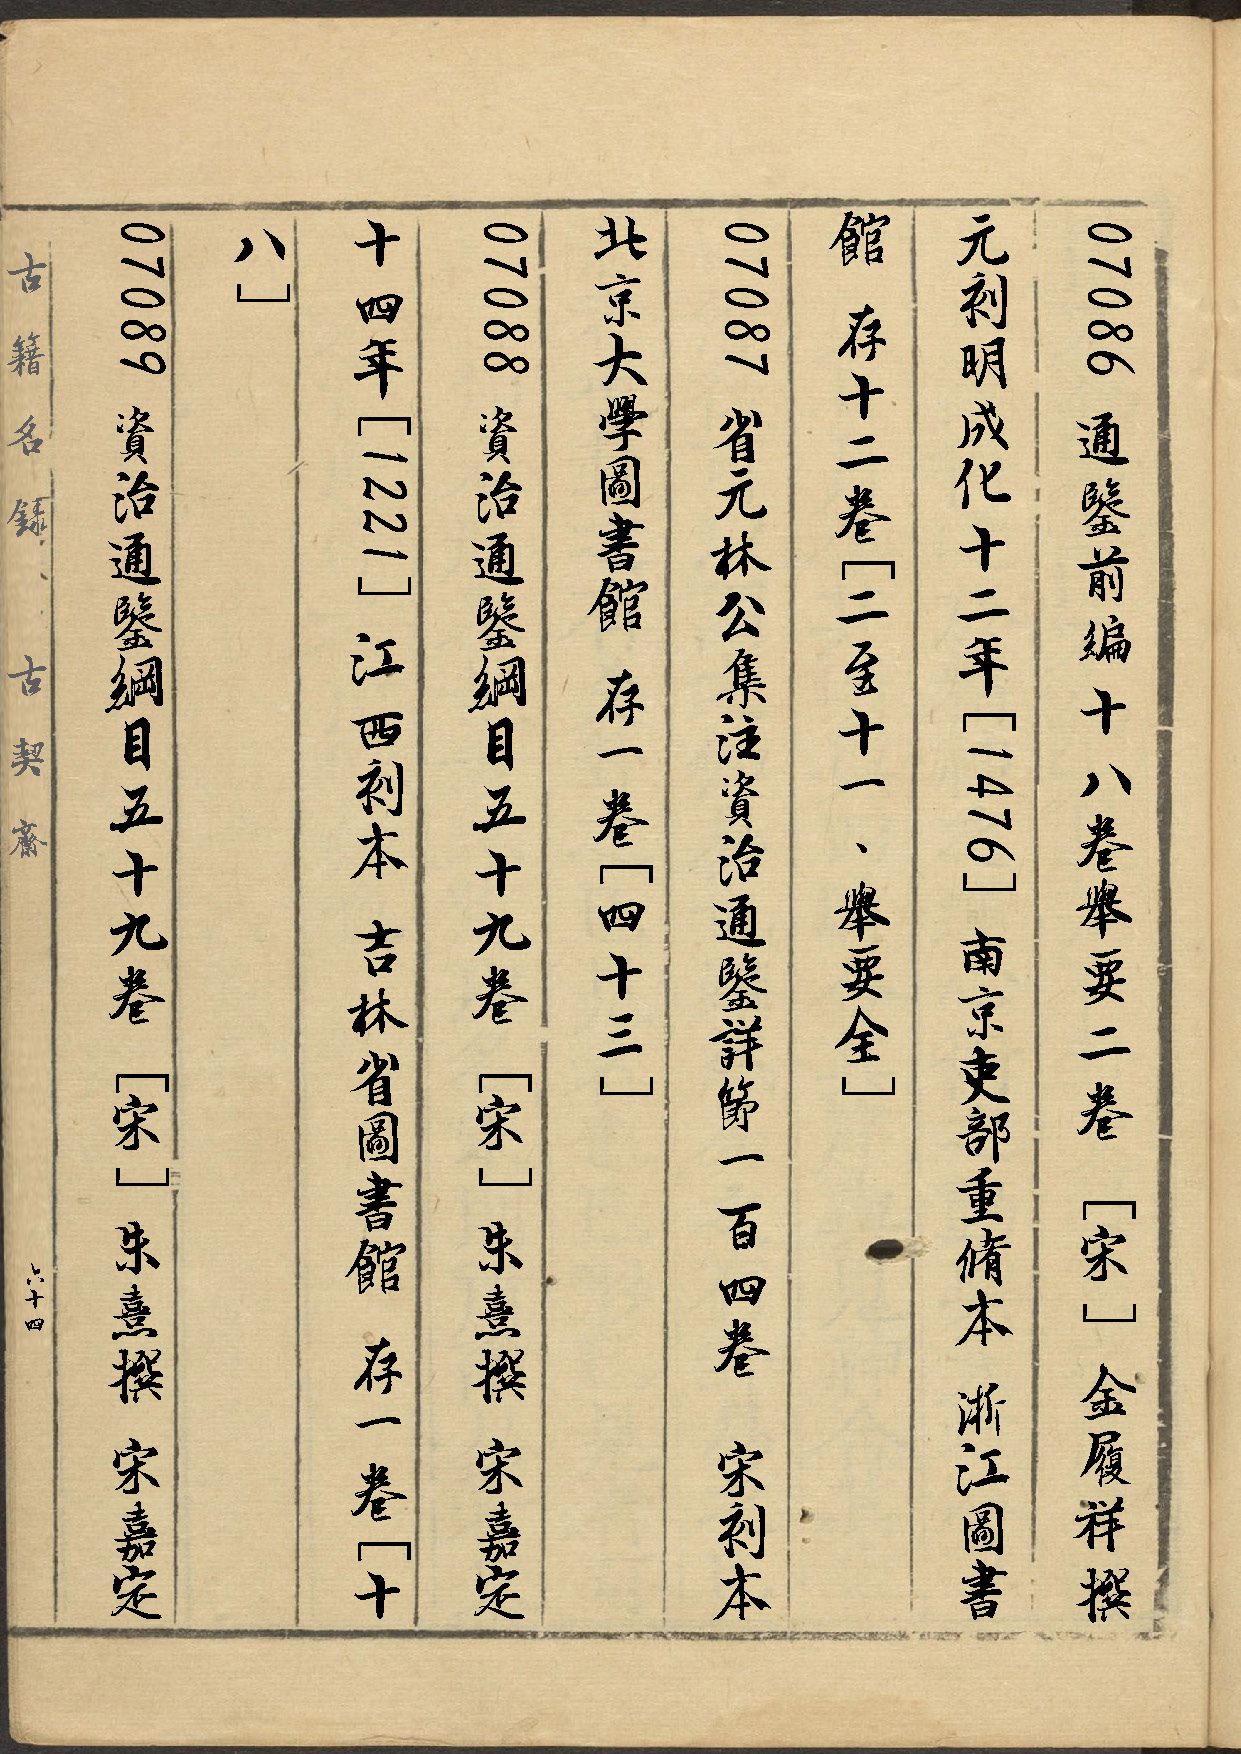 07086 通鑒前編十八卷舉要二卷 [宋] 金履祥撰
元刻明成化十二年[1476] 南京吏部重脩本 浙江圖書
館 存十二卷[二至十一、舉要全]
07087 省元林公集注資治通鑒詳節一百四卷 宋刻本
北京大學圖書館 存一卷[四十三]
07088 資治通鑒綱目五十九卷 [宋] 朱熹撰 宋嘉定
十四年[1221] 江西刻本 吉林省圖書館 存一卷[十
八]
07089 資治通鑒綱目五十九卷 [宋] 朱熹撰 宋嘉定
古籍名錄、古契齋
六十四